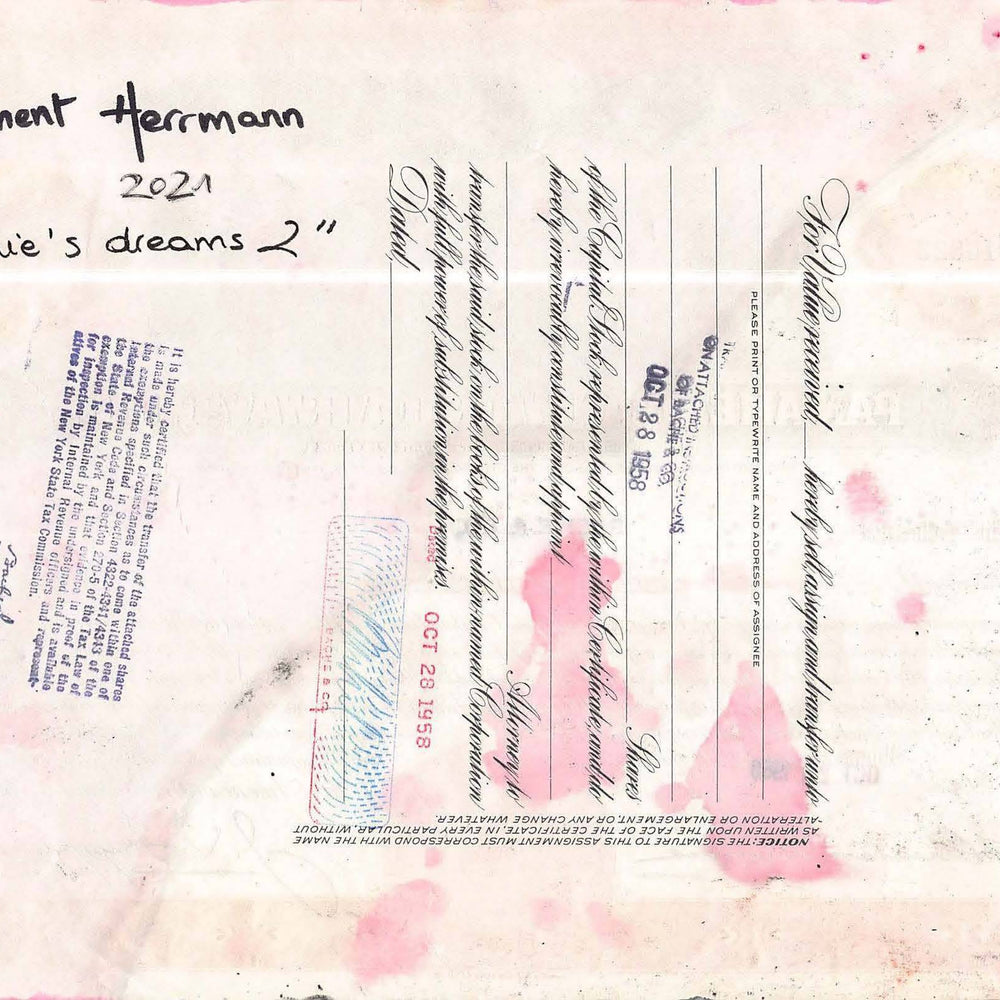 nent Herrmann
2021
ie's dreams 2"
For Value received, hereby sell, assign and transfer unto
PLEASE PRINT OR TYPEWRITE NAME AND ADDRESS OF ASSIGNEE
ON ATTACHED
OCT 28 1958
Shares
of the Capital Stock represented by the within Certificate, and do
hereby irrevocably constitute and appoint
Attorney to
transfer the said stock on the books of the within named Corporation
with full power of substitution in the premises.
Dated,
OCT 28 1958
BACHE & CO.
NOTICE: THE SIGNATURE TO THIS ASSIGNMENT MUST CORRESPOND WITH THE NAME
AS WRITTEN UPON THE FACE OF THE CERTIFICATE, IN EVERY PARTICULAR, WITHOUT
ALTERATION OR ENLARGEMENT, OR ANY CHANGE WHATEVER.
It is hereby certified that the transfer of the attached shares
is made under such circumstances as to come within one of
the exemptions specified in Section 4322-4341/4343 of the
Internal Revenue Code and Section 270-5 of the Tax Law of
the State of New York and that evidence in proof of the
exemption is maintained by the undersigned and is available
for inspection by Internal Revenue officers and represent-
atives of the New York State Tax Commission.